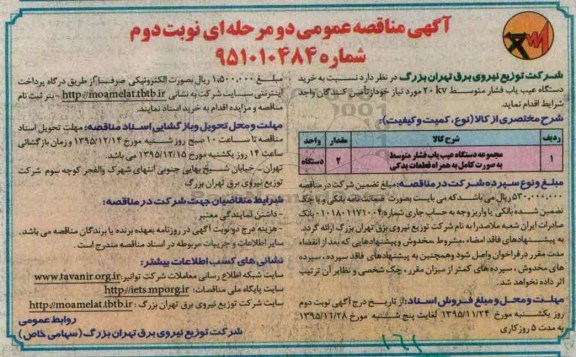 آگهی مناقصه عمومی دو مرحله ای نوبت دوم
شماره ۹۵۱۰۱۰۴۸۴
شرکت توزیع نیروی برق تهران بزرگ در نظر دارد نسبت به خرید
دستگاه عیب یاب فشار متوسط ۲۰ kv مورد نیاز خود از تأمین کنندگان واجد
شرایط اقدام نماید.
شرح مختصری از کالا (نوع، کمیت و کیفیت):
ردیف شرح کالا مقدار واحد
۱ مجموعه دستگاه عیب یاب فشار متوسط ۲ دستگاه
به صورت کامل به همراه قطعات یدکی
مبلغ و نوع سپرده شرکت در مناقصه: مبلغ تضمین شرکت در مناقصه
۵۳۰,۰۰۰,۰۰۰ ریال می باشد که می بایست بصورت ضمانت نامه بانکی و یا چک
تضمین شده بانکی یا واریز وجه به حساب جاری شماره ۰۱۰۱۸۰۱۱۷۱۰۰۴ بانک
صادرات ایران شعبه ملاصدرا به نام شرکت توزیع نیروی برق تهران بزرگ ارائه گردد.
به پیشنهادهای فاقد امضاء، مشروط، مخدوش و پیشنهادهایی که بعد از انقضاء
مدت مقرر در فراخوان واصل شود و همچنین به پیشنهادهای فاقد سپرده، سپرده
های مخدوش، سپرده های کمتر از میزان مقرر، چک شخصی و نظایر آن ترتیب
اثر داده نخواهد شد.
مهلت و محل و مبلغ فروش اسناد: از تاریخ درج آگهی نوبت دوم
روز یکشنبه مورخ ۱۳۹۵/۱۱/۲۴ لغایت پنج شنبه مورخ ۱۳۹۵/۱۱/۲۸
به مدت ۵ روز کاری
مبلغ ۱,۵۰۰,۰۰۰ ریال بصورت الکترونیکی صرفا از طریق درگاه پرداخت
اینترنتی سایت شرکت به نشانی http://moamelat.tbtb.ir - بنر ثبت نام
مناقصه و مزایده اقدام به خرید اسناد نمایند.
مهلت و محل تحویل و بازگشایی اسناد مناقصه: مهلت تحویل اسناد
مناقصه تا ساعت ۱۰ صبح روز شنبه مورخ ۱۳۹۵/۱۲/۱۴ و زمان بازگشائی
ساعت ۱۲ روز یکشنبه مورخ ۱۳۹۵/۱۲/۱۵ می باشد.
تهران - خیابان شیخ بهایی جنوبی انتهای شهرک والفجر کوچه سوم شرکت
توزیع نیروی برق تهران بزرگ
شرایط متقاضیان جهت شرکت در مناقصه:
- داشتن نمایندگی معتبر
- هزینه درج دو نوبت آگهی در روزنامه بعهده برنده یا برندگان مناقصه می باشد.
سایر اطلاعات و جزییات مربوطه در اسناد مناقصه مندرج است.
نشانی های کسب اطلاعات بیشتر:
سایت شبکه اطلاع رسانی معاملات شرکت توانیر: www.tavanir.org.ir
سایت پایگاه ملی مناقصات: http://iets.mporg.ir
سایت شرکت توزیع نیروی برق تهران بزرگ: http://moamelat.tbtb.ir
روابط عمومی
شرکت توزیع نیروی برق تهران بزرگ (سهامی خاص)